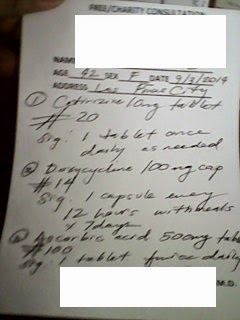 FREE/CHARITY CONSULTATION
NAME
AGE 42 SEX F DATE 9/3/2014
ADDRESS Las Piñas City
① Cetirizine 10mg tablet
# 20
Sig: 1 tablet once
daily as needed
② Doxycycline 100mg cap
# 14
Sig: 1 capsule every
12 hours with meals
x 7 days
Ascorbic acid 500mg tab
# 100
Sig: 1 tablet twice daily
M.D.